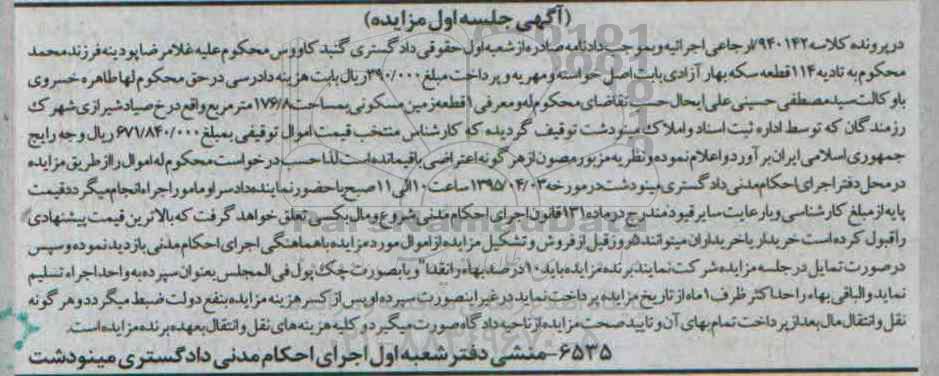 (آگهی جلسه اول مزایده)
در پرونده کلاسه ۹۴۰۱۴۲/ا رجاعی اجرائیه و بموجب دادنامه صادره از شعبه اول حقوقی دادگستری گنبد کاووس محکوم علیه غلامرضا پودینه فرزند محمد
محکوم به تادیه ۱۱۴ قطعه سکه بهار آزادی بابت اصل خواسته و مهریه و پرداخت مبلغ ۳۹۰/۰۰۰ ریال بابت هزینه دادرسی در حق محکوم لها طاهره خسروی
با وکالت سید مصطفی حسینی علی ایحال حسب تقاضای محکوم له و معرفی ۱ قطعه زمین مسکونی بمساحت ۱۷۶/۸ متر مربع واقع در خ صیاد شیرازی شهرک
رزمندگان که توسط اداره ثبت اسناد و املاک مینودشت توقیف گردیده که کارشناس منتخب قیمت اموال توقیفی بمبلغ ۶۷۱/۸۴۰/۰۰۰ ریال وجه رایج
جمهوری اسلامی ایران بر آورد و اعلام نموده و نظریه مزبور مصون از هر گونه اعتراضی باقیمانده است لذا حسب درخواست محکوم له اموال را از طریق مزایده
در محل دفتر اجرای احکام مدنی دادگستری مینودشت در مورخه ۱۳۹۵/۰۴/۰۳ ساعت ۱۰ الی ۱۱ صبح با حضور نماینده دادسرا و مامور اجراء انجام میگردد قیمت
پایه از مبلغ کارشناسی و با رعایت سایر قیود مندرج در ماده ۱۳۱ قانون اجرای احکام مدنی شروع و مال بکسی تعلق خواهد گرفت که بالاترین قیمت پیشنهادی
را قبول کرده است خریدار یا خریداران میتوانند ۵ روز قبل از فروش و تشکیل مزایده از اموال مورد مزایده با هماهنگی اجرای احکام مدنی بازدید نموده و سپس
در صورت تمایل در جلسه مزایده شرکت نمایند برنده مزایده باید ۱۰ درصد بهاء را نقدا" و یا بصورت چک پول فی المجلس بعنوان سپرده به واحد اجراء تسلیم
نماید و الباقی بهاء را حداکثر ظرف ۱ ماه از تاریخ مزایده پرداخت نماید در غیر اینصورت سپرده او پس از کسر هزینه مزایده بنفع دولت ضبط میگردد و هر گونه
نقل و انتقال مال بعد از پرداخت تمام بهای آن و تایید صحت مزایده از ناحیه دادگاه صورت میگیرد و کلیه هزینه های نقل و انتقال بعهده برنده مزایده است.
۶۵۳۵-منشی دفتر شعبه اول اجرای احکام مدنی دادگستری مینودشت